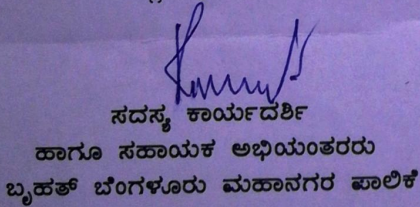 ಸದಸ್ಯ ಕಾರ್ಯದರ್ಶಿ
ಹಾಗೂ ಸಹಾಯಕ ಅಭಿಯಂತರರು
ಬೃಹತ್ ಬೆಂಗಳೂರು ಮಹಾನಗರ ಪಾಲಿಕೆ